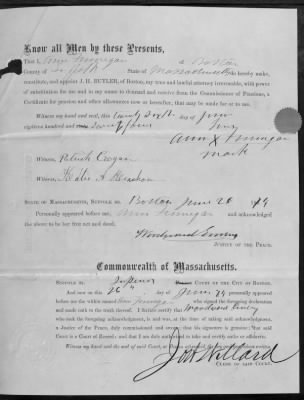 Know all Men by these Presents,
That I, Ann Finnegan of Boston
County of Suffolk State of Massachusetts do hereby make,
constitute, and appoint J. H. BUTLER, of Boston, my true and lawful attorney irrevocable, with power
of substitution for me and in my name to demand and receive from the Commissioner of Pensions, a
Certificate for pension and other allowances now or hereafter, that may be made for or to me.
Witness my hand and seal, this twenty sixth day of June
eighteen hundred and seventy four
her
Ann X Finnegan
mark
Witness, Patrick Cregan
Witness,
STATE OF MASSACHUSETTS, SUFFOLK SS. Boston June 26 1874
Personally appeared before me, Ann Finnegan and acknowledged
the above to be her free act and deed.
Woodward Emery
JUSTICE OF THE PEACE.
Commonwealth of Massachusetts.
SUFFOLK SS. Superior COURT OF THE CITY OF BOSTON.
And now on this 26th day of June 74 personally appeared
before me the within named Ann Finnegan who signed the foregoing declaration
and made oath to the truth thereof. I further certify that Woodward Emery
who took the foregoing acknowledgment, is and was, at the time of taking said acknowledgment,
a Justice of the Peace, duly commissioned and sworn; that his signature is genuine; that said
Court is a Court of Record; and that I am duly authorized to take and certify oaths or affidavits.
Witness my hand and the seal of said Court, at Boston aforesaid, the
Jos. A. Willard
CLERK OF SAID COURT.